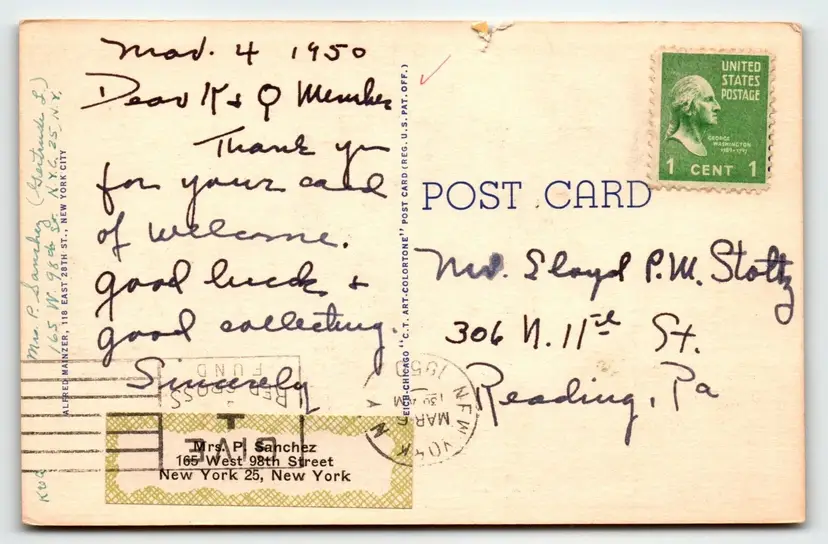 Mar. 4 1950
Dear K & Q Member
Thank you
for your card
of welcome.
good luck &
good collecting.
Sincerely
Mrs. P. Sanchez (Gertrude L.)
165 W. 98th St. N.Y.C. 25, N.Y.
ALFRED MAINZER, 118 EAST 28TH ST., NEW YORK CITY
Mrs. P. Sanchez
165 West 98th Street
New York 25, New York
GIVE
RED CROSS
FUND
"C.T. ART-COLORTONE" POST CARD (REG. U.S. PAT. OFF.)
UNITED
STATES
POSTAGE
GEORGE
WASHINGTON
1789-1797
1 CENT 1
POST CARD
Mr. Lloyd P.M. Stoltz
306 N. 11th St.
Reading, Pa
NEW YORK
MAR
1950